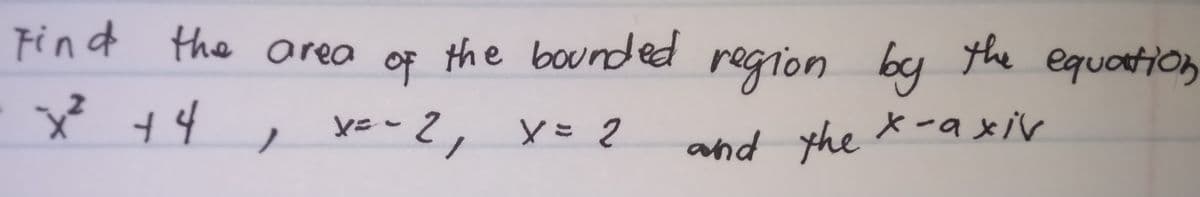 Find the area of the bounded region by the equation
-x² + 4 , x=-2, x = 2 and the x-axis